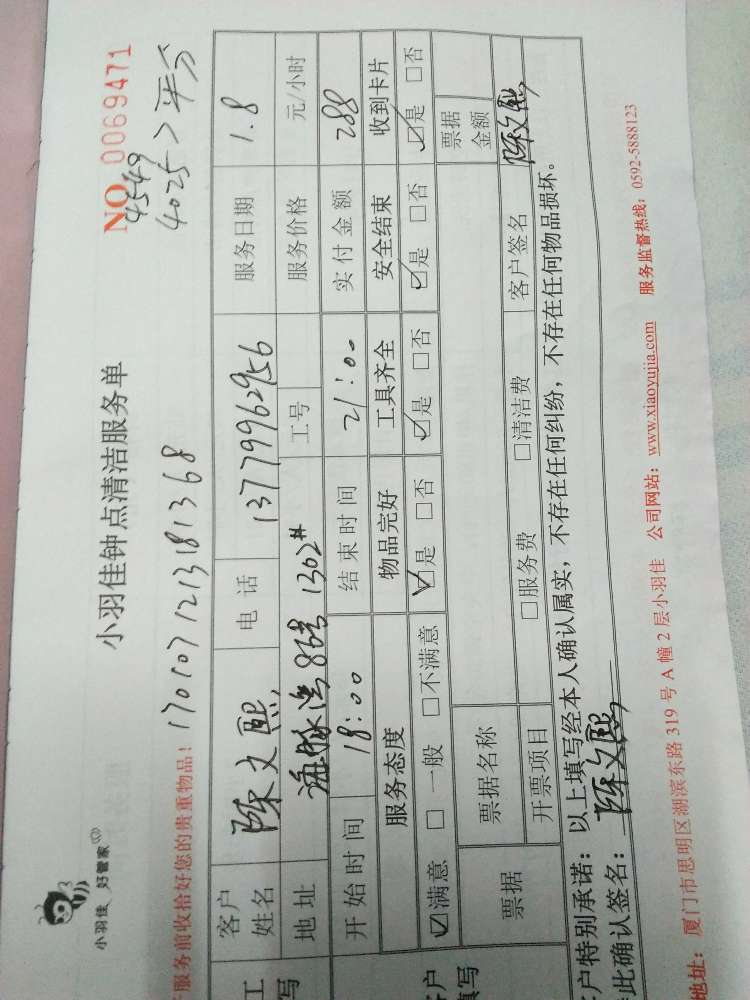 小羽佳 好管家
小羽佳钟点清洁服务单
NO 0069471
4549
4025 > 平分
服务前收拾好您的贵重物品! 170107121318 1368
客户姓名 陈文熙 电话 13779962956 服务日期 1.8
地址 海脉湾86号 1302# 工号 服务价格 元/小时
开始时间 18:00 结束时间 21:00 实付金额 288
服务态度 物品完好 工具齐全 安全结束 收到卡片
☑满意 □一般 □不满意 ☑是 □否 ☑是 □否 ☑是 □否 ☑是 □否
票据 票据名称 票据金额
开票项目 □服务费 □清洁费 客户签名 陈文熙
户特别承诺:以上填写经本人确认属实,不存在任何纠纷,不存在任何物品损坏。
此确认签名: 陈文熙
地址:厦门市思明区湖滨东路 319 号 A 幢 2 层小羽佳 公司网站:www.xiaoyujia.com 服务监督热线:0592-5888123